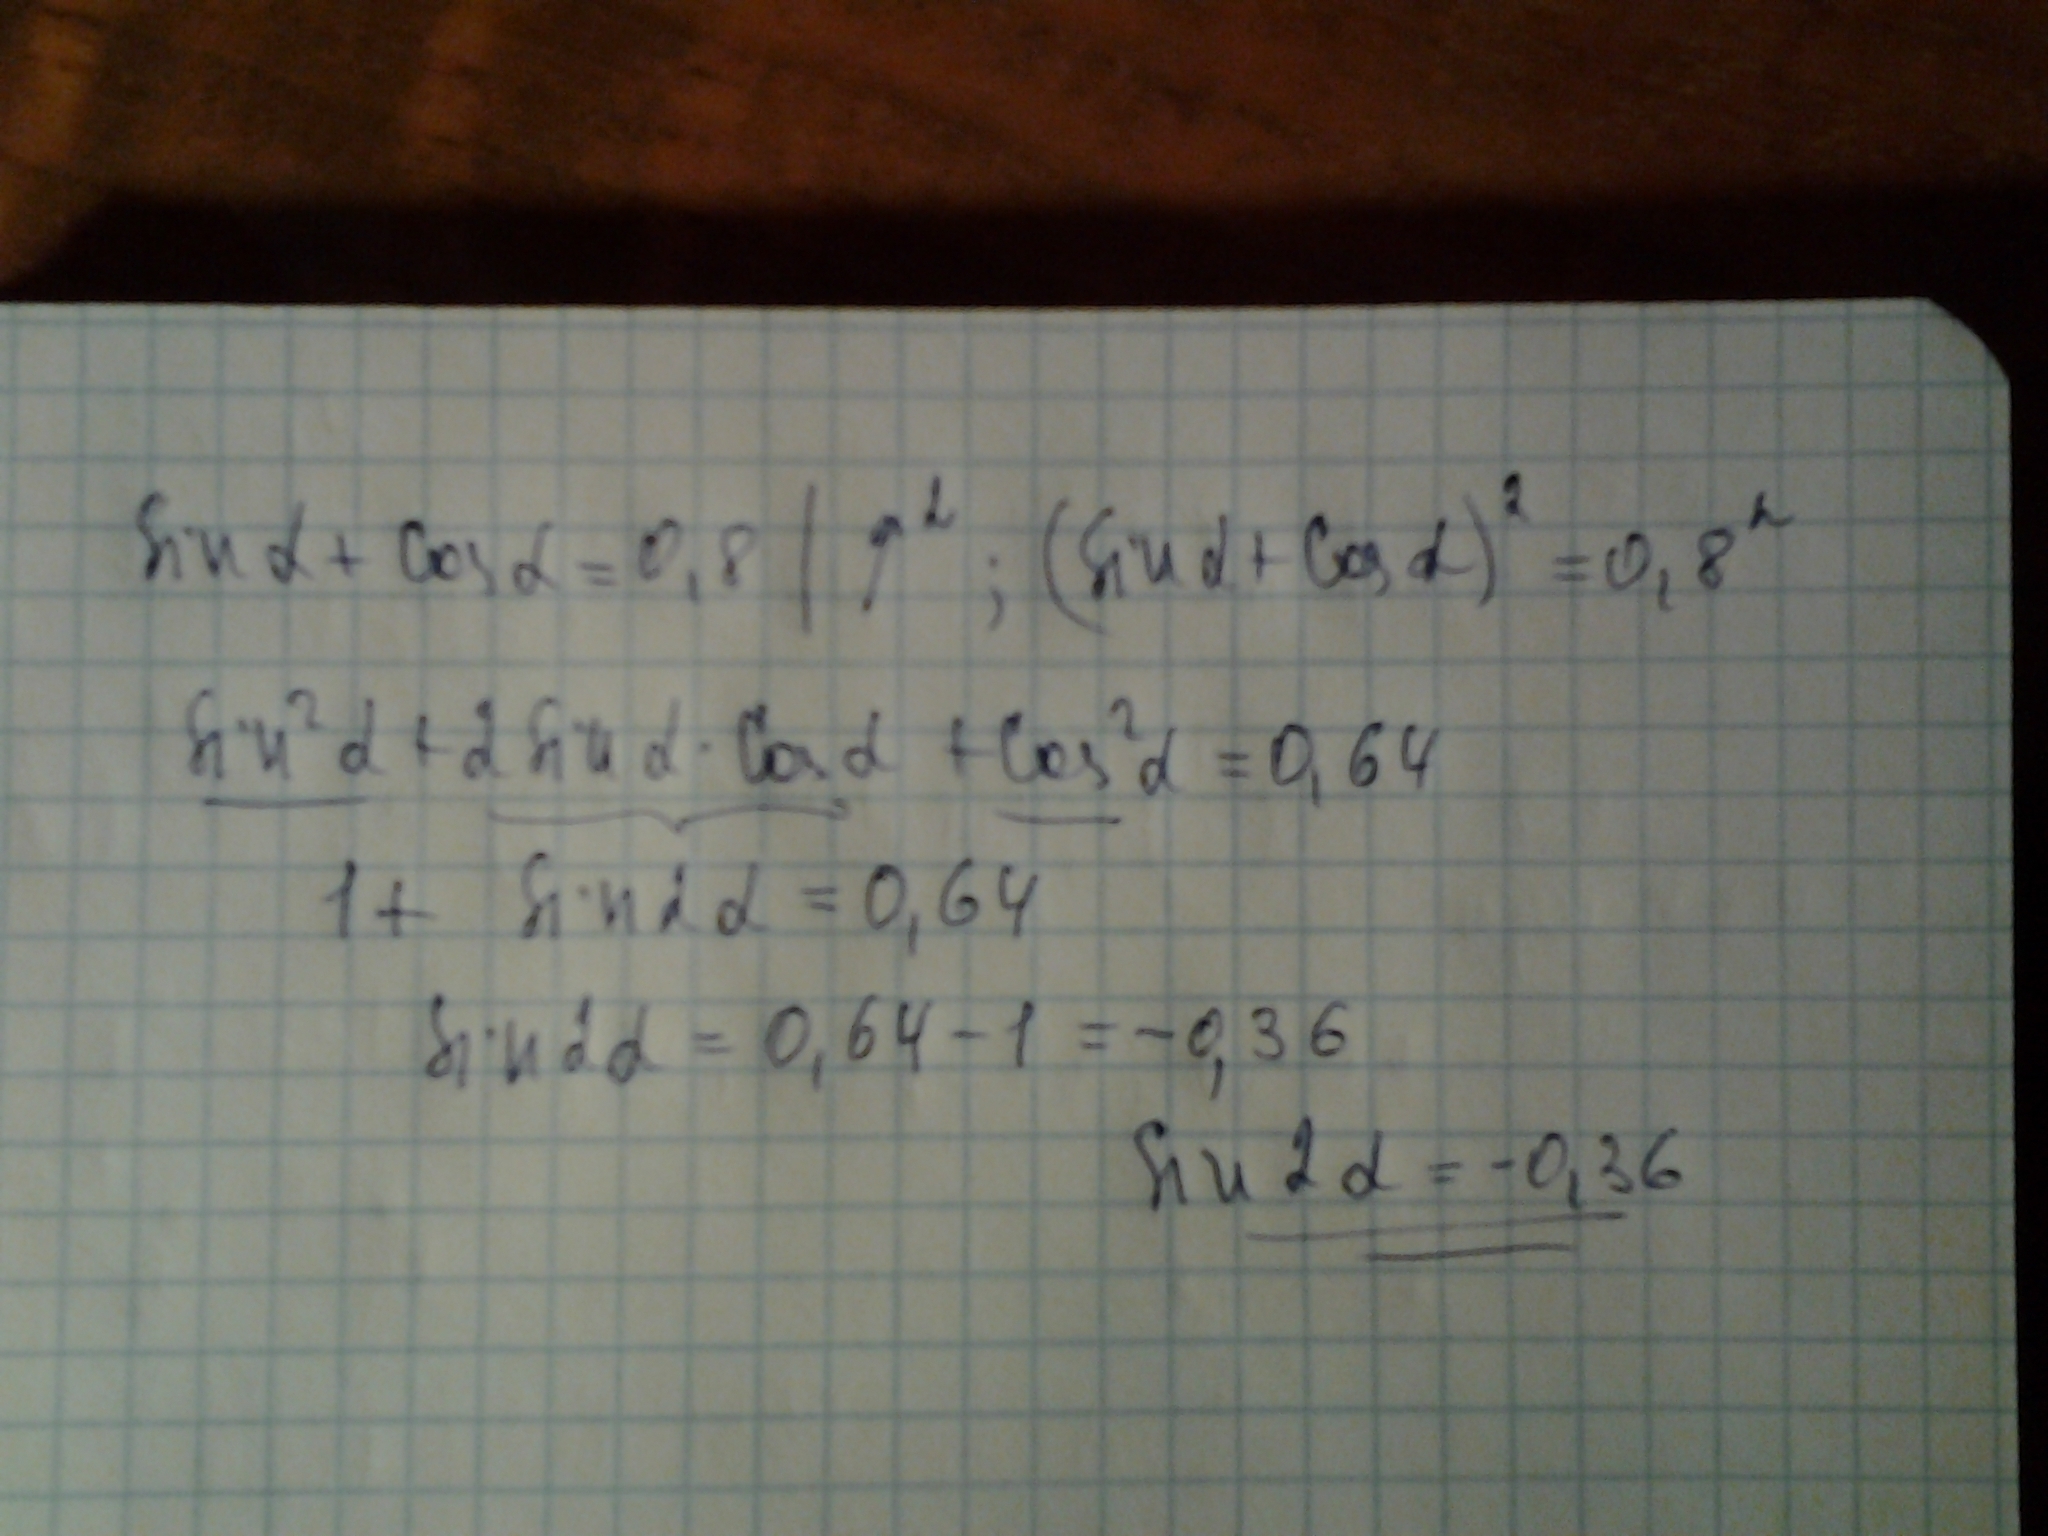 sin α + cos α = 0,8 | ↑² ; (sin α + cos α)² = 0,8²
sin² α + 2 sin α · cos α + cos² α = 0,64
1 + sin 2α = 0,64
sin 2α = 0,64 - 1 = -0,36
sin 2α = -0,36